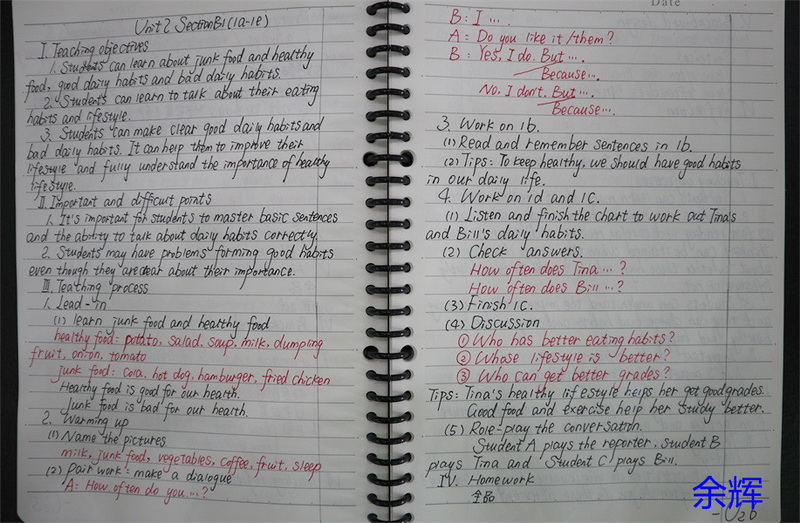 Unit 2 Section B1 (1a-1e)
I. Teaching objectives
1. Students can learn about junk food and healthy
food, good daily habits and bad daily habits.
2. Students can learn to talk about their eating
habits and lifestyle.
3. Students can make clear good daily habits and
bad daily habits. It can help them to improve their
lifestyle and fully understand the importance of healthy
lifestyle.
II. Important and difficult points
1. It's important for students to master basic sentences
and the ability to talk about daily habits correctly.
2. Students may have problems forming good habits
even though they are clear about their importance.
III. Teaching process
1. Lead-in
(1) learn junk food and healthy food
healthy food: potato, salad, soup, milk, dumpling
fruit, onion, tomato
junk food: cola, hot dog, hamburger, fried chicken
Healthy food is good for our health.
Junk food is bad for our health.
2. Warming up
(1) Name the pictures
milk, junk food, vegetables, coffee, fruit, sleep
(2) Pair work: make a dialogue
A: How often do you ...?
Date
B: I ....
A: Do you like it/them?
B: Yes, I do. But ....
Because....
No, I don't. But ....
Because....
3. Work on 1b.
(1) Read and remember sentences in 1b.
(2) Tips: To keep healthy, we should have good habits
in our daily life.
4. Work on 1d and 1c.
(1) Listen and finish the chart to work out Tina's
and Bill's daily habits.
(2) Check answers.
How often does Tina ...?
How often does Bill ...?
(3) Finish 1c.
(4) Discussion
① Who has better eating habits?
② Whose lifestyle is better?
③ Who can get better grades?
Tips: Tina's healthy lifestyle helps her get good grades.
Good food and exercise help her study better.
(5) Role-play the conversation.
Student A plays the reporter, student B
plays Tina and Student C plays Bill.
IV. Homework
全品
余辉